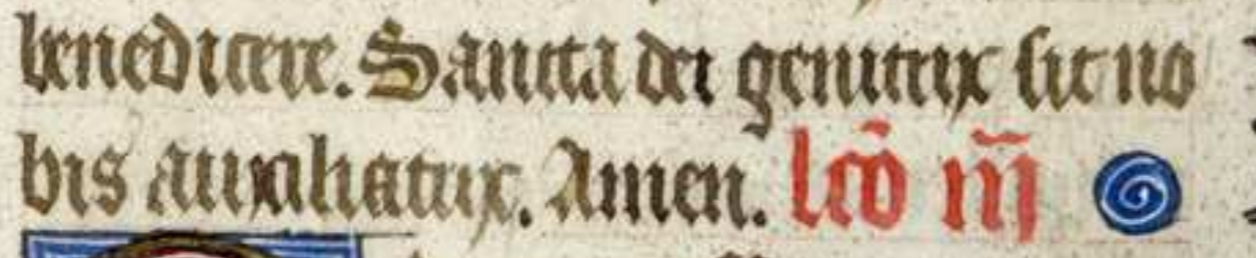 benedicere. Sancta dei genitrix sit no
bis auxiliatrix. Amen. lc̄o iij̄